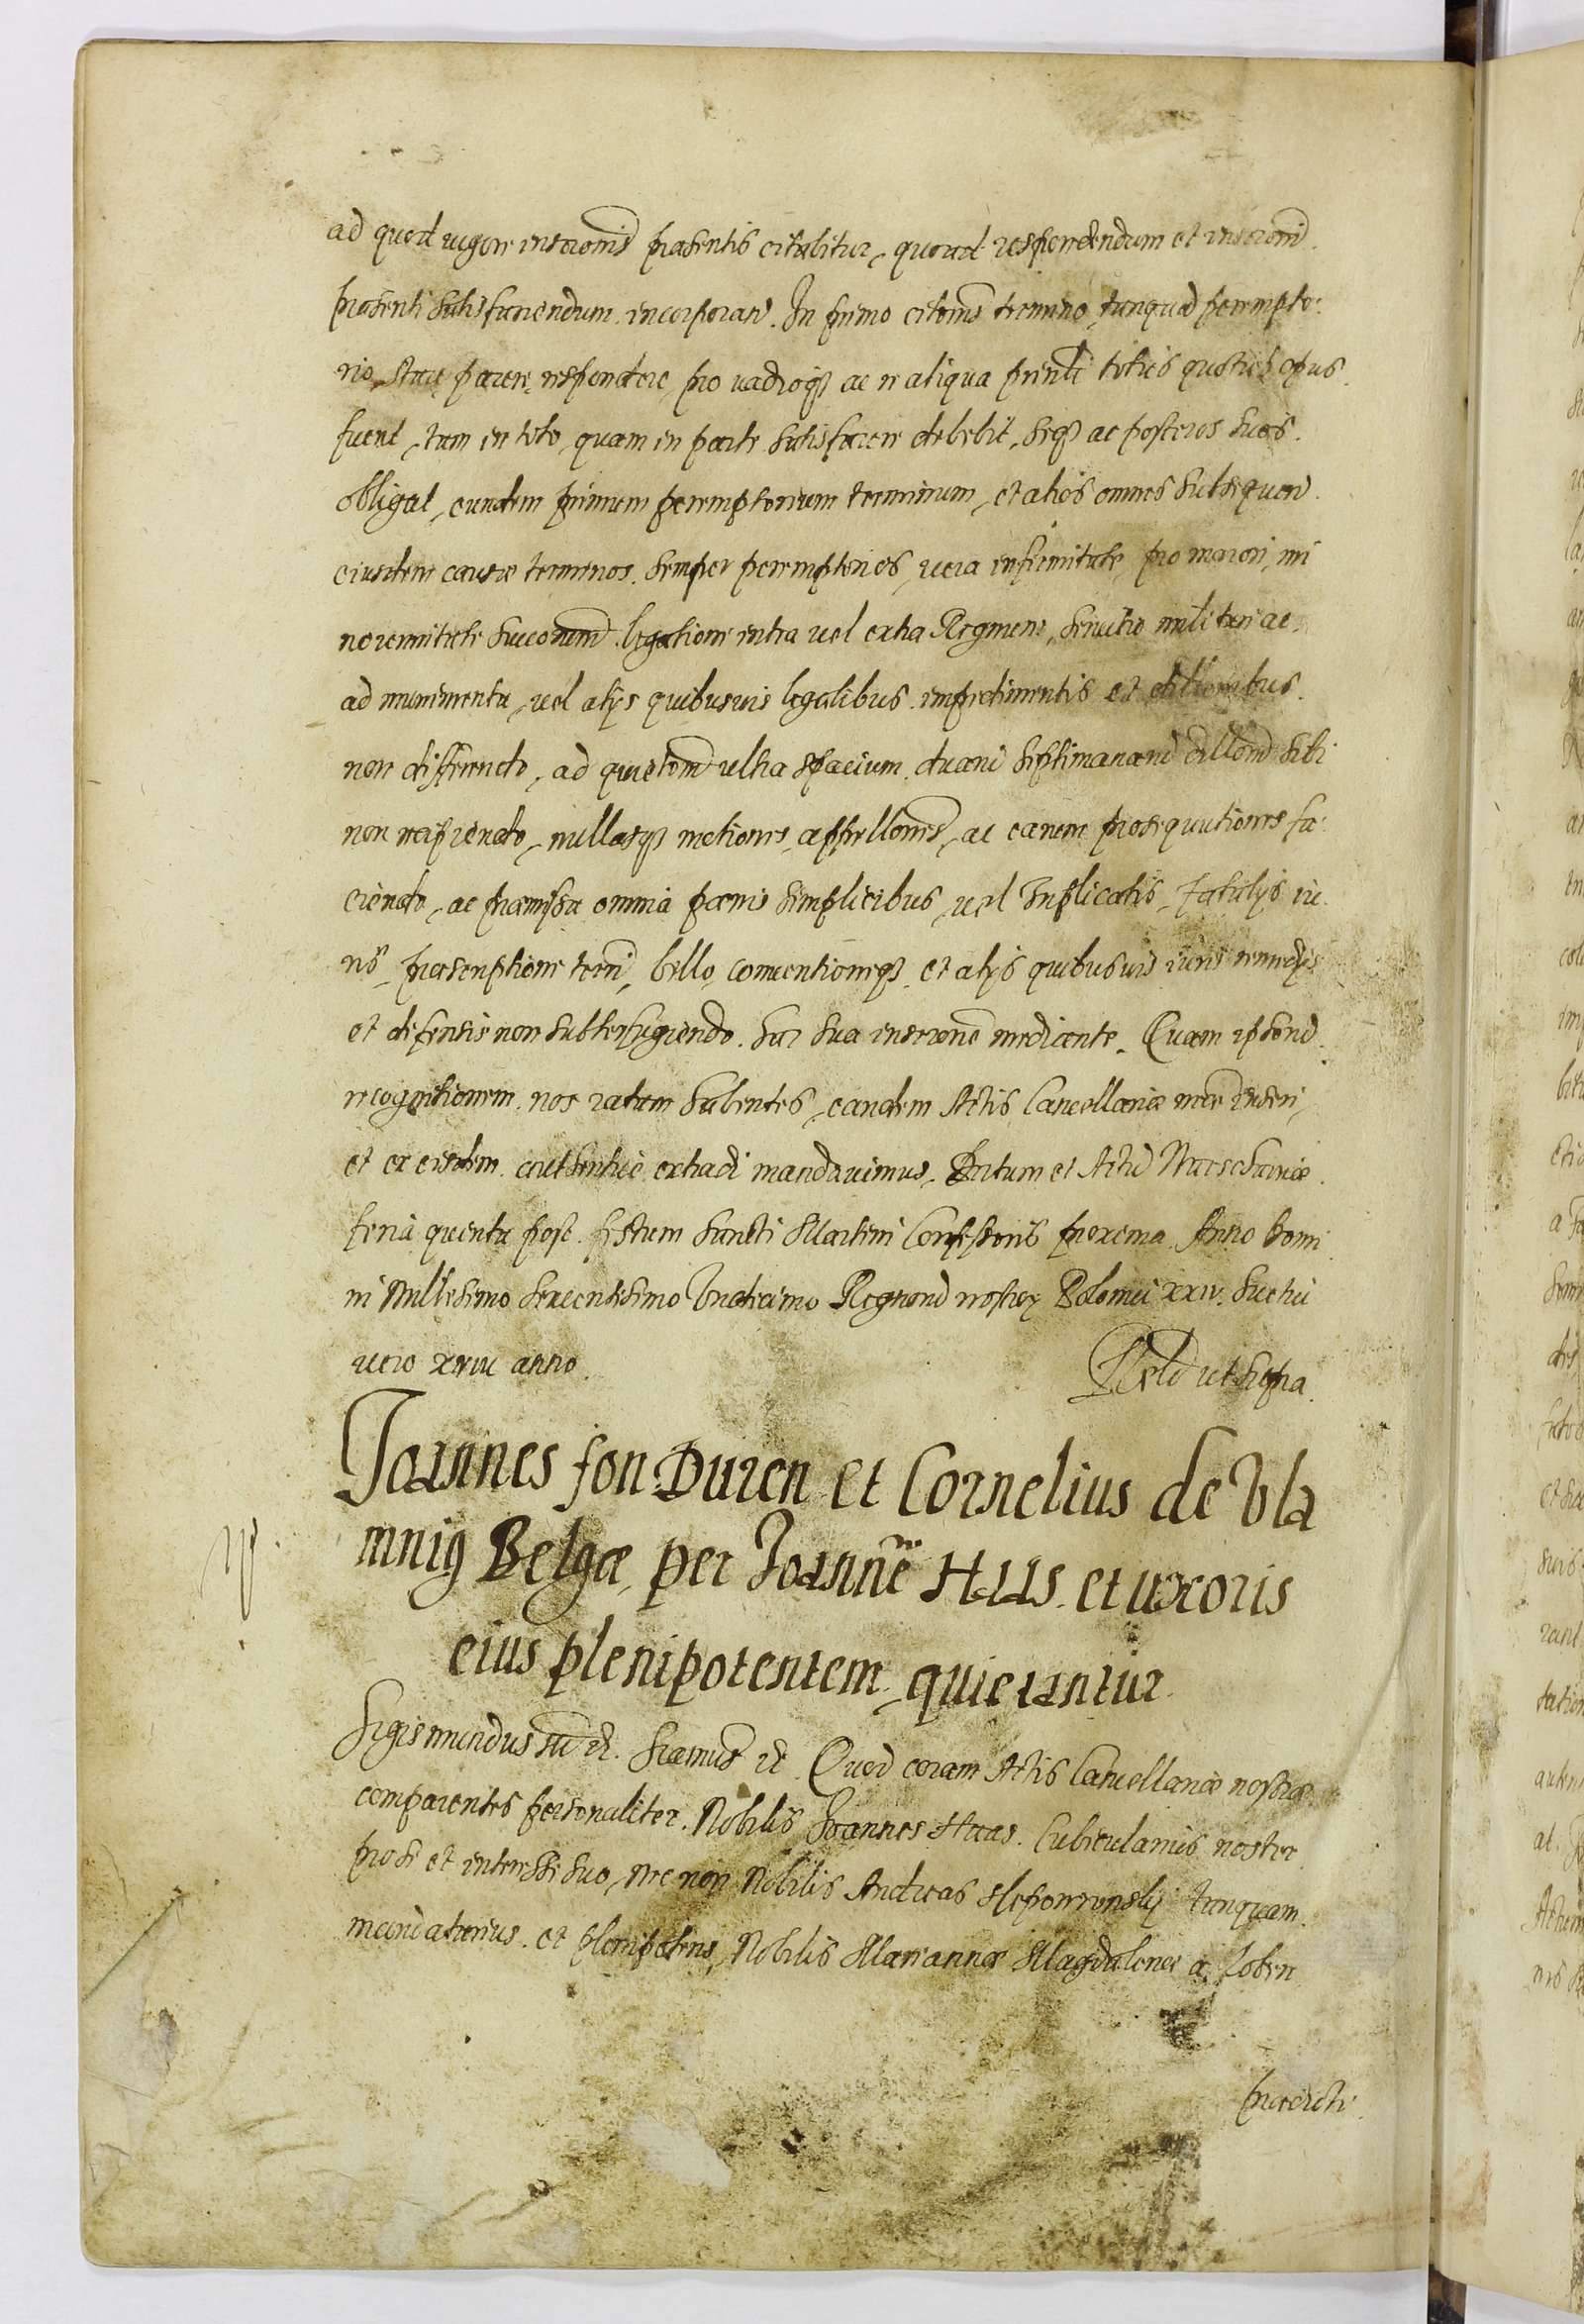 ad quod vigore inscrōnis præsentis citabitur, quoad respondendum et inscrōni
præsenti satisfaciendum incorporaŕ. In primo citōnis termino, tanquā perempto-
rio, stare, parere, respondere, pro vadioqꝫ ac re aliqua præmissa toties quoties opus
fuerit, tam in toto, quam in parte satisfacere debebit, seqꝫ ac posteros suos
obligat, eundem primum peremptorium terminum, et alios omnes subsequeñ
eiusdem causæ terminos semper peremptorios, vera infirmitate, pro maiori, mi
norennitate succorum legatione intra vel extra Regnum, servitio militari ac
ad munimenta, vel alijs quibusvis legalibus impedimentis et dilōnibus
non differendo, ad quietōnē ultra spacium duarū septimanarū dillōnē sibi
non recipiendo, nullasqꝫ motiones, appellōnes, ac earum prosequutiones fa-
ciendo, ac præmissa omnia pænis simplicibus, vel Triplicatis, fatalijs iu
ris, præscriptione terrī, bello, conventioneqꝫ et alijs quibusvis iuris remedijs
et defensis non subterfugiendo. Hac sua inscrōne mediante. Quam ipsorū
recognitionem nos ratam habentes, eandem Actis Cancellariæ nræ inseri,
et ex eisdem authentice extradi mandavimus. Datum et Actū Warschaviæ
feria quinta post festum Sancti Martini Confessoris proxima Anno Domi
ni Millesimo Sexcentesimo Undecimo Regnorū nostroꝝ Poloniæ XXIV. Suetiæ
vero XVIII anno. Relō ut supra.
Joannes fon Duren et Cornelius de Vla
mnig Belgæ, per Joannē Haas et uxoris
eius plenipotentem, quietantur
Sigismundus III etc. Significamus etc. Quod coram Actis Cancellariæ nostræ
comparentes personaliter Nobilis Joannes Haas Cubicularius noster
pro se et interesse suo, nec non Nobilis Andreas tanquam
mandatarius et plenipotens Nobilis Mariannæ Magdalenæ a Loben
prædicti